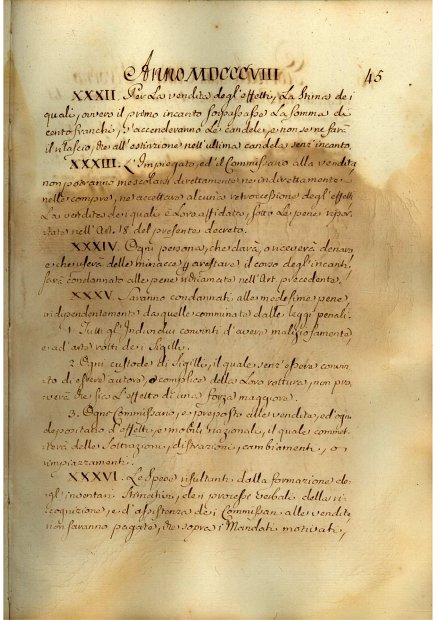 Anno MDCCCVIII
45
XXXII. Per La vendita degl'effetti, La Stima dei
quali, ovvero il primo incanto sorpassasse La Somma di
cento franchi, s'accenderanno Le candele, e non se ne farà
il rilascio, che all'estinzione nell'ultima candela senz'incanto.
XXXIII. L'Impiegato, ed il Commissario alla vendita
non potranno mescolarsi direttamente ne indirettamente
nelle compre, ne accettare alcuna retrocessione degl'effetti
La vendita dei quali è Loro affidata, sotto Le pene ripor-
tate nell'Art. 18. del presente decreto.
XXXIV. Ogni persona, che darà, o riceverà denaro
e che userà delle minacce p arrestare il corso degl'incanti,
sarà condannato alle pene indicate nell'Art. precedente.
XXXV. Saranno condannati alle medesime pene
indipendentemente da quelle comminate dalle leggi penali.
1. Tutti gl'Individui convinti d'avere maliziosamente,
e ad'arte rotti dei Sigilli.
2. Ogni custode di Sigilli, il quale senz'essere convin-
to di essere autore, o complice della Loro rottura, non pro-
verà che sia L'effetto di una forza maggiore.
3. Ogni Commissario, e preposto alle vendite, ed'ogni
depositario d'effetti, e mobili nazionali, il quale commet-
terà delle Sottrazioni, distrazioni, cambiamenti, o
rimpiazzamenti.
XXXVI. Le Spese risultanti dalla formazione de-
gl'inventari Stimativi, dei processi verbali della ri-
cognizione, e d'assistenza dei Commissari alle vendite
non saranno pagate, che sopra i Mandati motivati,